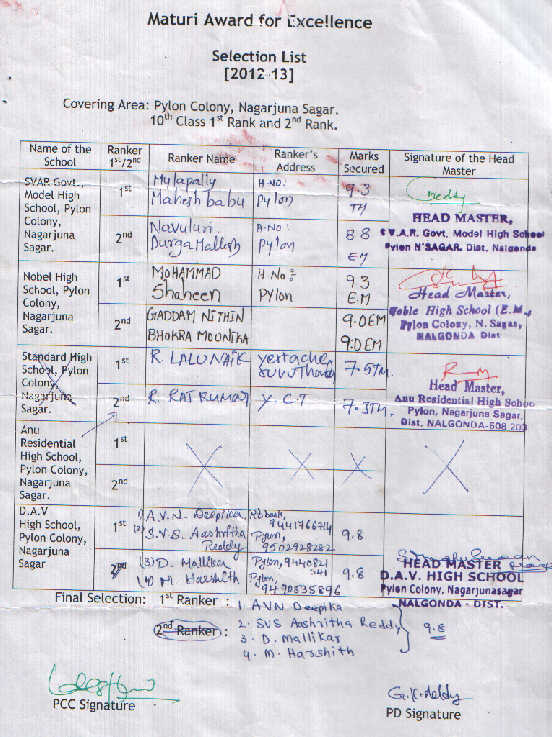 Maturi Award for Excellence
Selection List
[2012-13]
Covering Area: Pylon Colony, Nagarjuna Sagar.
10th Class 1st Rank and 2nd Rank.
Name of the School
Ranker 1st/2nd
Ranker Name
Ranker's Address
Marks Secured
Signature of the Head Master
SVAR Govt., Model High School, Pylon Colony, Nagarjuna Sagar.
1st
Mulapally Mahesh babu
H.NO: pylon
9.3
TM
HEAD MASTER,
S.V.A.R. Govt. Model High School
Pylon N'SAGAR. Dist. Nalgonda
2nd
Navuluri
H.NO: pylon
88
EM
Nobel High School, Pylon Colony, Nagarjuna Sagar.
1st
MOHAMMAD Shaheen
H.No: Pylon
93
E.M
Head Master,
Noble High School (E.M.)
Pylon Colony, N. Sagar,
NALGONDA Dist
2nd
GADDAM NITHIN
9.0EM
BHUKRA MOUNIKA
9.0EM
Standard High School, Pylon Colony, Nagarjuna Sagar.
1st
R. LALU NAIK
7.5TM.
Head Master,
Anu Residential High School
Pylon, Nagarjuna Sagar,
Dist. NALGONDA-508 202
2nd
R. RAJ KUMAR
Y.C.T
7.3TM.
Anu Residential High School, Pylon Colony, Nagarjuna Sagar.
1st
2nd
D.A.V High School, Pylon Colony, Nagarjuna Sagar
1st
1) A.V.N. Deepika
(2) S.V.S. Aashritha Reddy
Pylon, 9502928282
9.8
2nd
(3) D. Mallikar
Pylon, 9440821541
(4) M. Harshith
Pylon, 9490835896
9.8
HEAD MASTER
D.A.V. HIGH SCHOOL
Pylon Colony, Nagarjunasagar
NALGONDA - DIST.
Final Selection: 1st Ranker : 1 AVN Deepika
2nd Ranker : 2. SVS Aashritha Reddy
3. D. Mallikar
4. M. Harshith
9.8
PCC Signature
G.K. Reddy
PD Signature